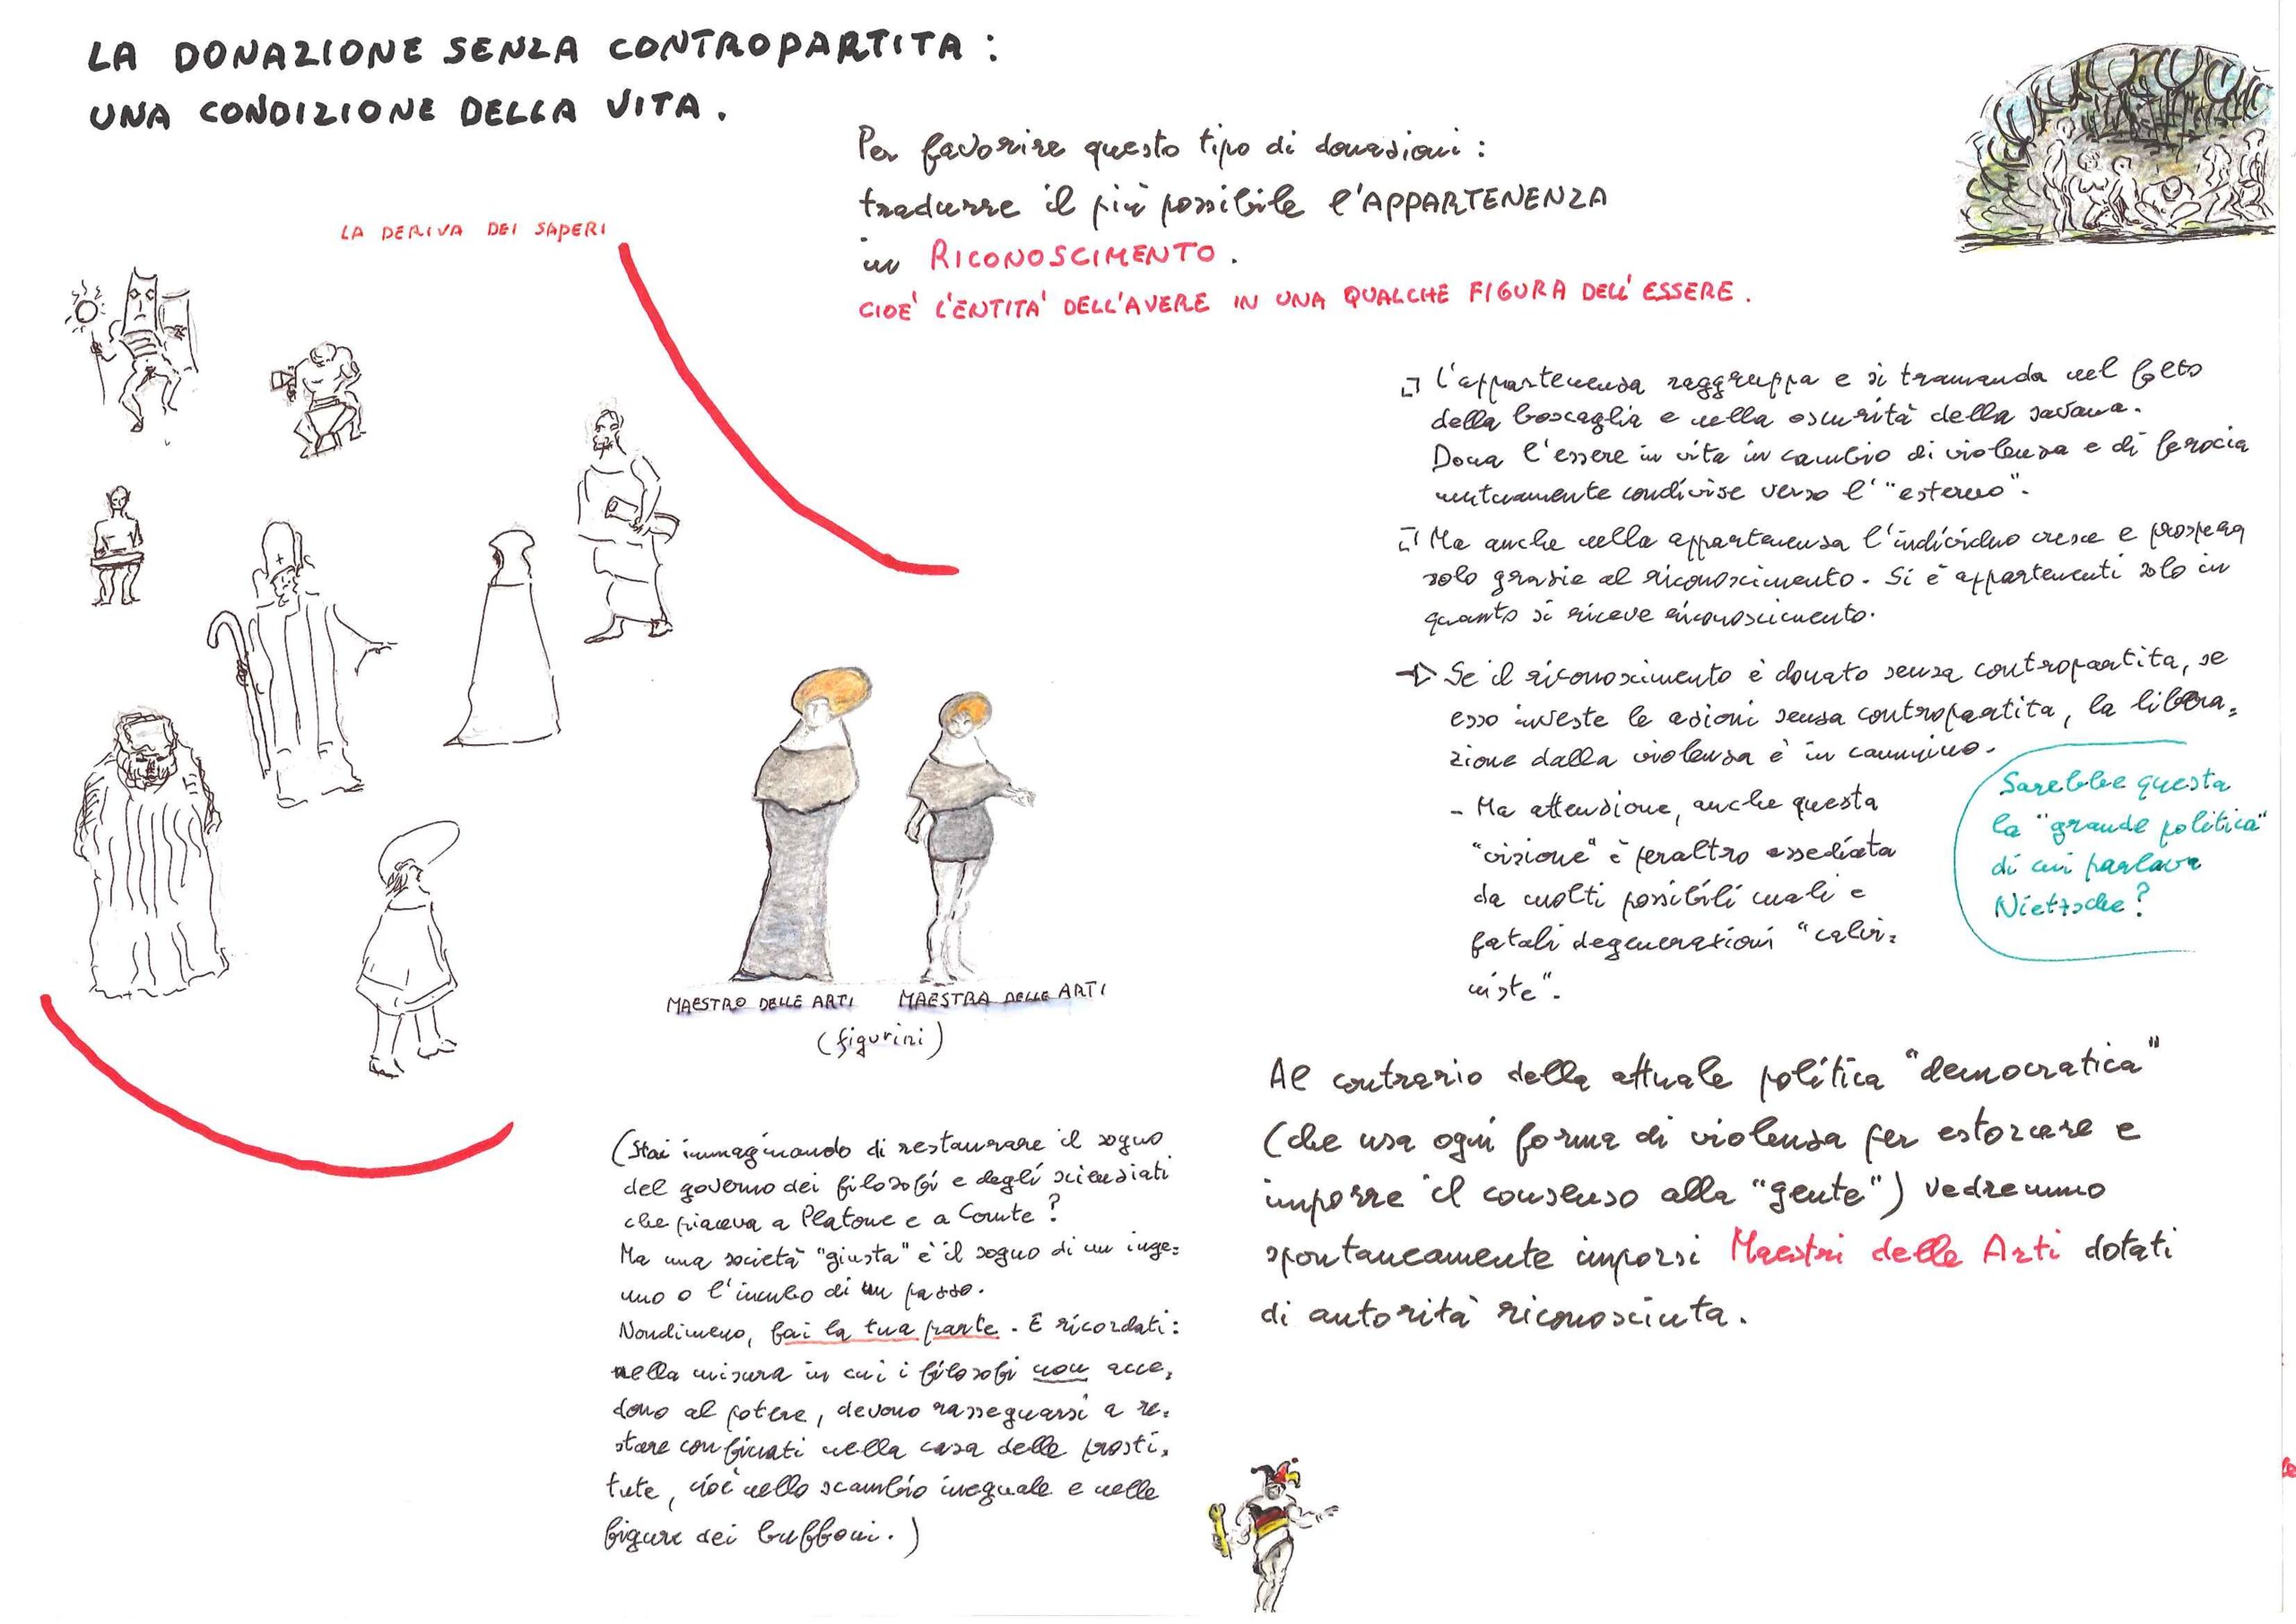 LA DONAZIONE SENZA CONTROPARTITA :
UNA CONDIZIONE DELLA VITA .
Per favorire questo tipo di donazioni :
tradurre il più possibile l'APPARTENENZA
in RICONOSCIMENTO .
CIOE' L'ENTITA' DELL'AVERE IN UNA QUALCHE FIGURA DELL'ESSERE .
LA DERIVA DEI SAPERI
L'appartenenza raggruppa e si tramanda nel folto
della boscaglia e nella oscurità della savana.
Dona l'essere in vita in cambio di violenza e di ferocia
mutuamente condivise verso l' "esterno".
Ma anche nella appartenenza l'individuo cresce e prospera
solo grazie al riconoscimento. Si è appartenenti solo in
quanto si riceve riconoscimento.
Se il riconoscimento è donato senza contropartita, se
esso investe le azioni senza contropartita, la libera=
zione dalla violenza è in cammino.
- Ma attenzione, anche questa
"visione" è peraltro assediata
da molti possibili mali e
fatali degenerazioni "calvi=
niste".
Sarebbe questa
la "grande politica"
di cui parlava
Nietzsche?
MAESTRO DELLE ARTI MAESTRA DELLE ARTI
(figurini)
Al contrario della attuale politica "democratica"
(che usa ogni forma di violenza per estorcere e
imporre il consenso alla "gente") vedremmo
spontaneamente imporsi Maestri delle Arti dotati
di autorità riconosciuta.
(Stai immaginando di restaurare il sogno
del governo dei filosofi e degli scienziati
che piaceva a Platone e a Comte?
Ma una società "giusta" è il sogno di un inge=
nuo o l'incubo di un pazzo.
Nondimeno, fai la tua parte. E ricordati:
nella misura in cui i filosofi non acce=
dono al potere, devono rassegnarsi a re=
stare confinati nella casa delle prosti=
tute, cioè nello scambio ineguale e nelle
figure dei buffoni.)